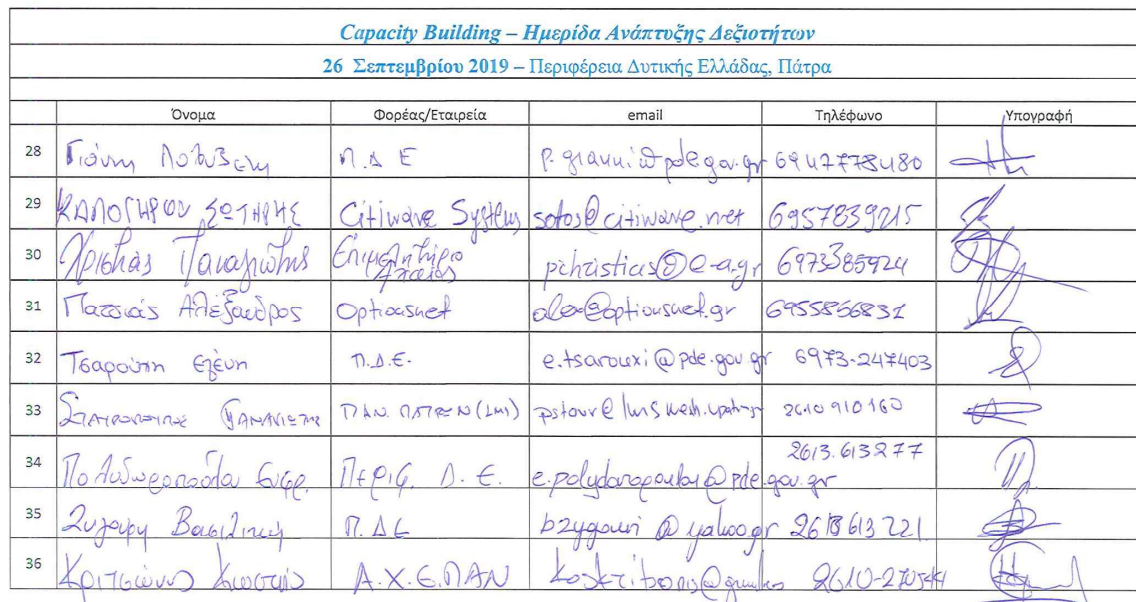 Capacity Building – Ημερίδα Ανάπτυξης Δεξιοτήτων
26 Σεπτεμβρίου 2019 – Περιφέρεια Δυτικής Ελλάδας, Πάτρα
Όνομα Φορέας/Εταιρεία email Τηλέφωνο Υπογραφή
28 Γιάννη Π.Δ.Ε 6947778480
29 ΚΑΛΟΓΗΡΟΥ ΣΩΤΗΡΗΣ Citiwave Systems sotos@citiwave.net 6957839215
30 Χρηστιάς Παναγιώτης Επιμελητήριο Αχαΐας pchristias@e-a.gr 6973385924
31 Πατσιάς Αλέξανδρος Optionsnet alex@optionsnet.gr 6955866831
32 Τσαρούχη Ελένη Π.Δ.Ε. e.tsarouxi@pde.gov.gr 6973-247403
33 ΠΑΝ. ΠΑΤΡΩΝ (LMS) 2610 910160
34 Πολυδωροπούλου Ευφρ. Περιφ. Δ. Ε. e.polydoropoulou@pde.gov.gr 2613.613277
35 Ζυγούρη Βασιλική Π.ΔΕ bzygouri@yahoo.gr 2613613221
36 Κωστής Α.Χ.Ε.ΠΑΝ 2610-270544